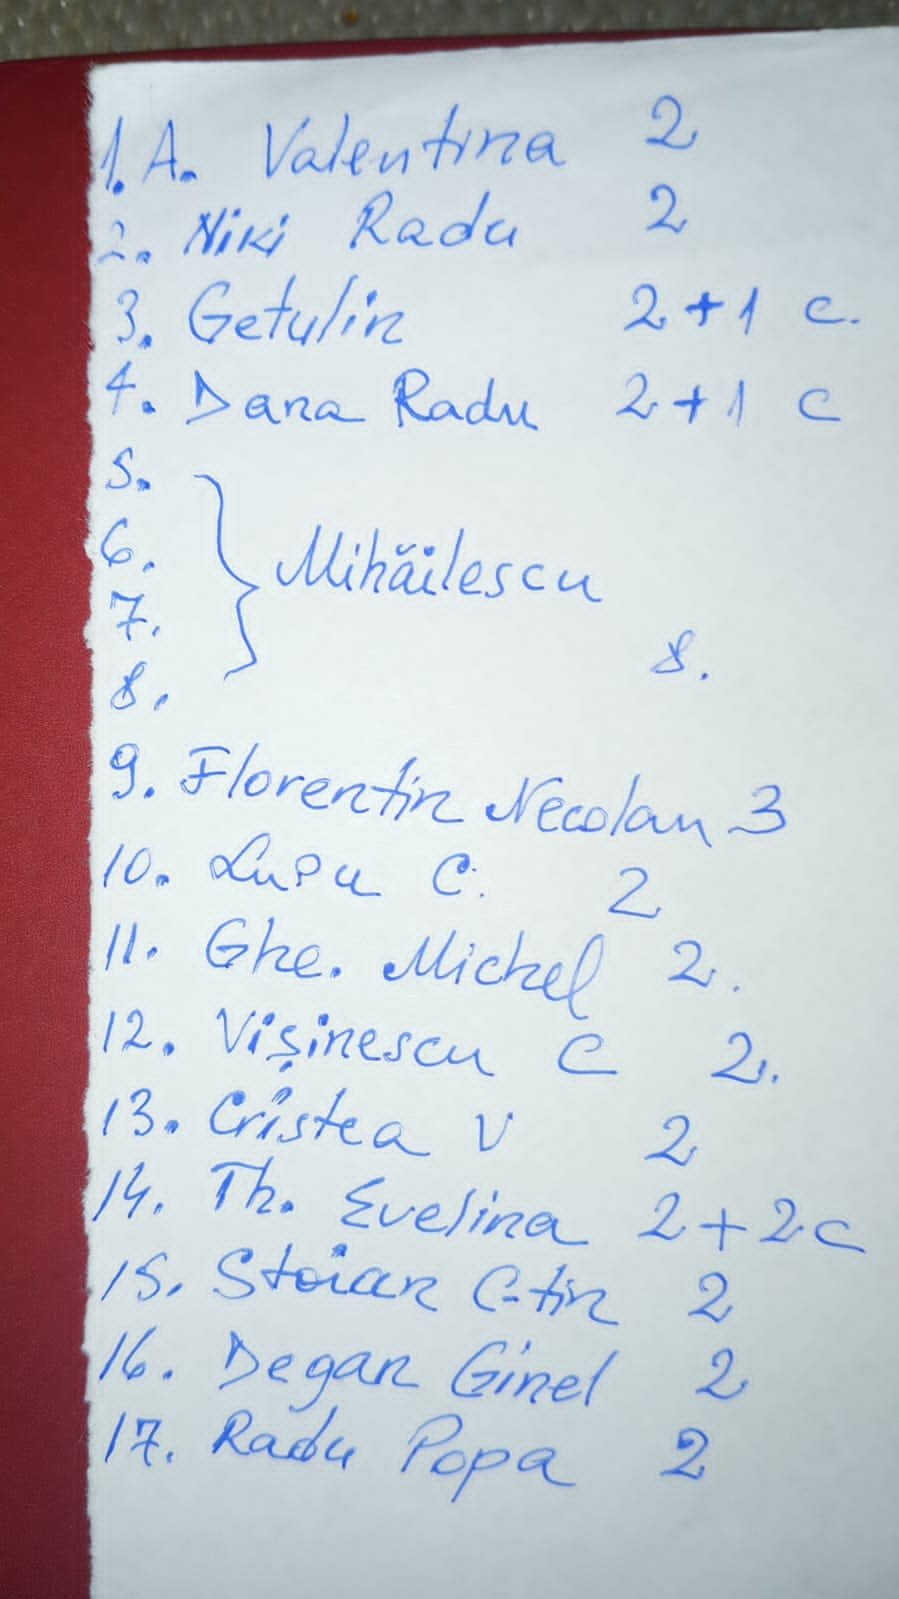 1. A. Valentina 2
2. Niki Radu 2
3. Getulin 2+1 c.
4. Dana Radu 2+1 c
5.
6. Mihăilescu
7.
8. 8.
9. Florentin Necolau 3
10. Lupu C. 2
11. Ghe. Michel 2.
12. Vișinescu C 2.
13. Cristea V 2
14. Th. Evelina 2+2c
15. Stoian C-tin 2
16. Degan Ginel 2
17. Radu Popa 2